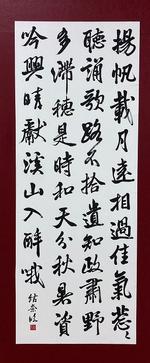 揚帆載月遠相過佳氣葱〻
聽誦歌路不拾遺知政肅野
多滯穗是時和天分秋暑資
吟興晴獻溪山入醉哦